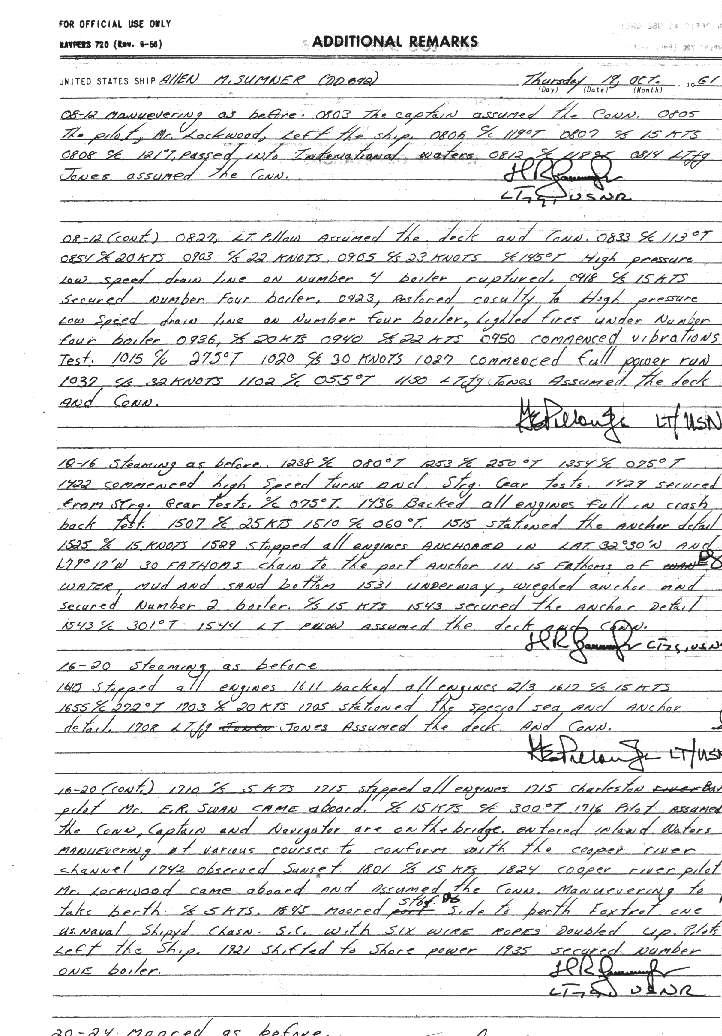 FOR OFFICIAL USE ONLY
NAVPERS 720 (Rev. 9-56)
ADDITIONAL REMARKS
UNITED STATES SHIP Allen M. SUMNER (DD 692) Thursday OCT. 1961
(Day) (Date) (Month)
08-12 Manuevering as before. 0803 The captain assumed the CONN. 0805
The pilot, Mr. Lockwood, left the ship. 0806 C/C 119°T 0807 C/S 15 KTS
0808 C/C 121°T, passed into International waters 0812 0814 LTjg
Jones assumed the Conn.
LTjg, USNR
08-12 (cont.) 0827, LT. Pillow Assumed the deck and Conn. 0833 C/C 113°T
0854 C/S 20 KTS 0903 C/S 22 KNOTS. 0905 C/S 23 KNOTS C/C 145°T High pressure
Low speed drain line on number 4 boiler ruptured. 0918 C/S 15 KTS
Secured number four boiler. 0923, Restored to High pressure
Low Speed drain line on Number four boiler, Lighted fires under Number
four boiler 0936, C/S 20 KTS 0940 C/S 22 KTS 0950 commenced vibrations
Test. 1015 C/C 275°T 1020 C/S 30 KNOTS 1027 commenced full power run
1037 C/S 32 KNOTS 1102 C/C 055°T 1150 LTjg Jones Assumed the deck
AND CONN.
LT/USN
12-16 Steaming as before. 1238 C/C 080°T 1253 C/C 250°T 1354 C/C 075°T
1422 commenced high Speed turns and Strg. Gear tests. 1429 secured
from Strg. Gear tests. C/C 075°T. 1436 Backed all engines full in crash
back test. 1507 C/S 25 KTS 1510 C/C 060°T. 1515 stationed the anchor detail
1525 C/S 15 KNOTS 1529 stopped all engines ANCHORED IN LAT. 32°30'N AND
L79°17'W 30 FATHOMS chain to the port Anchor IN 15 Fathoms of
WATER, MUD and SAND bottom 1531 UNDERWAY, wieghed anchor and
secured Number 2 boiler. C/S 15 KTS 1543 secured the ANCHOR Detail
1543 C/C 301°T 1544 LT PILLOW assumed the deck and CONN.
LTjg, USNR
16-20 Steaming as before
1610 Stopped all engines 1611 backed all engines 2/3 1617 C/S 15 KTS
1655 C/C 272°T 1703 C/S 20 KTS 1705 stationed the special sea and anchor
detail. 1708 LTjg JONES Assumed the deck AND CONN.
LT/USN
16-20 (cont.) 1710 C/S 5 KTS 1715 stopped all engines 1715 Charleston Bar
pilot Mr. E.R. SWAN CAME aboard. C/S 15 KTS C/C 300°T 1716 Pilot ASSUMED
the CONN, Captain and Navigator are on the bridge. entered Inland Waters
MANUEVERING at various courses to conform with the cooper river
channel 1742 observed Sunset 1801 C/S 15 KTS 1824 cooper river pilot
Mr. Lockwood came aboard and Assumed the Conn. Manuevering to
take berth. C/S 5 KTS. 1845 moored port Stbd Side to berth Foxtrot one
US. Naval Shipyd Chasn. S.C. with SIX WIRE ROPES Doubled up. Pilot
Left the Ship. 1921 Shifted to Shore power 1935 secured Number
ONE boiler.
LTjg USNR
20-24 Moored as before.